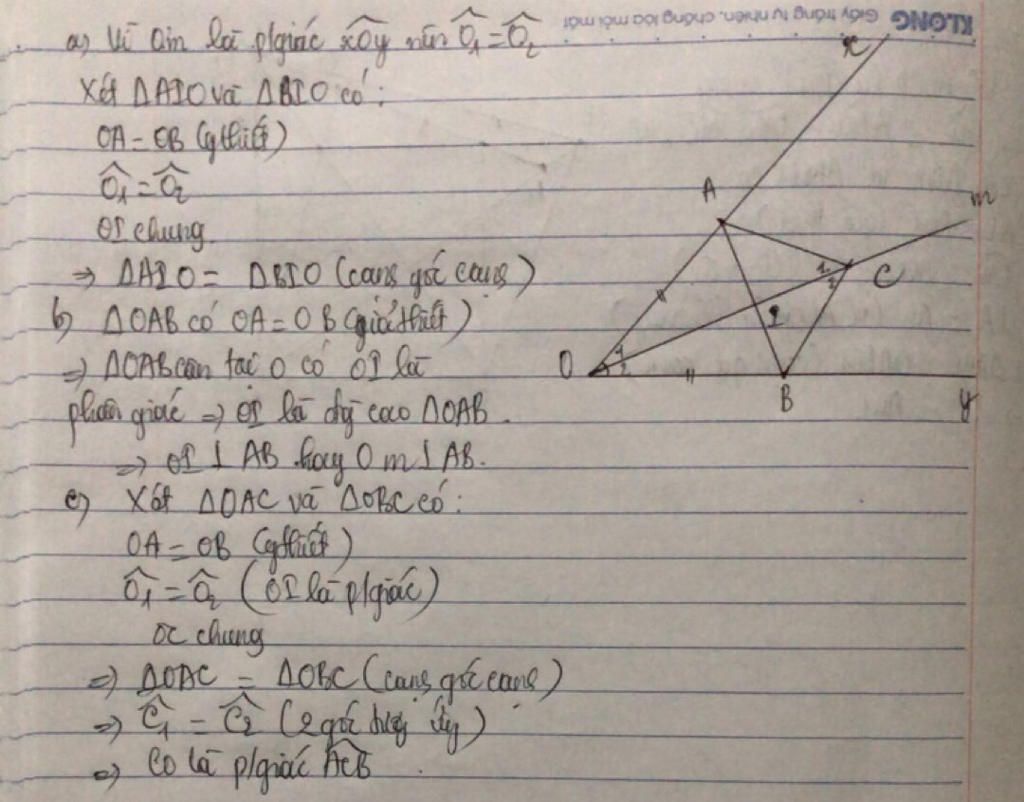 KLONG Giấy trắng tự nhiên, chống lóa mỏi mắt
a) Vì Om là p/giác xOy nên Ô1 = Ô2
Xét ΔAIO và ΔBIO có:
OA = OB (gthiết)
Ô1 = Ô2
OI chung
=> ΔAIO = ΔBIO (cạnh góc cạnh)
b) ΔOAB có OA = OB (giả thiết)
=> ΔOAB cân tại O có OI là
phân giác => OI là đg cao ΔOAB.
=> OI ⊥ AB hay Om ⊥ AB.
c) Xét ΔOAC và ΔOBC có:
OA = OB (gthiết)
Ô1 = Ô2 (OI là p/giác)
OC chung
=> ΔOAC = ΔOBC (cạnh góc cạnh)
=> Ĉ1 = Ĉ2 (2 góc tương ứng)
=> CO là p/giác ACB.
x
A
m
1
2
C
I
O
1
2
B
y